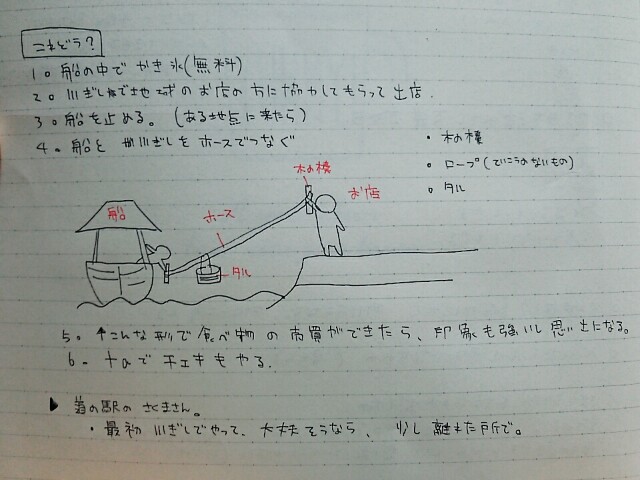 これどう？
1。船の中でかき氷(無料)
2。川ぎしで地域のお店の方に協力してもらって出店.
3。船を止める。(ある地点に来たら)
4。船と川ぎしをホースでつなぐ
・木の棒
・ロープ(ていこうのないもの)
・タル
木の棒
お店
船
ホース
タル
5。↑こんな形で食べ物の売買ができたら、印象も強いし思い出になる。
6-+αでチェキもやる.
▶道の駅のさくまさん。
・最初川ぎしでやって、大丈夫そうなら、少し離れた所で。